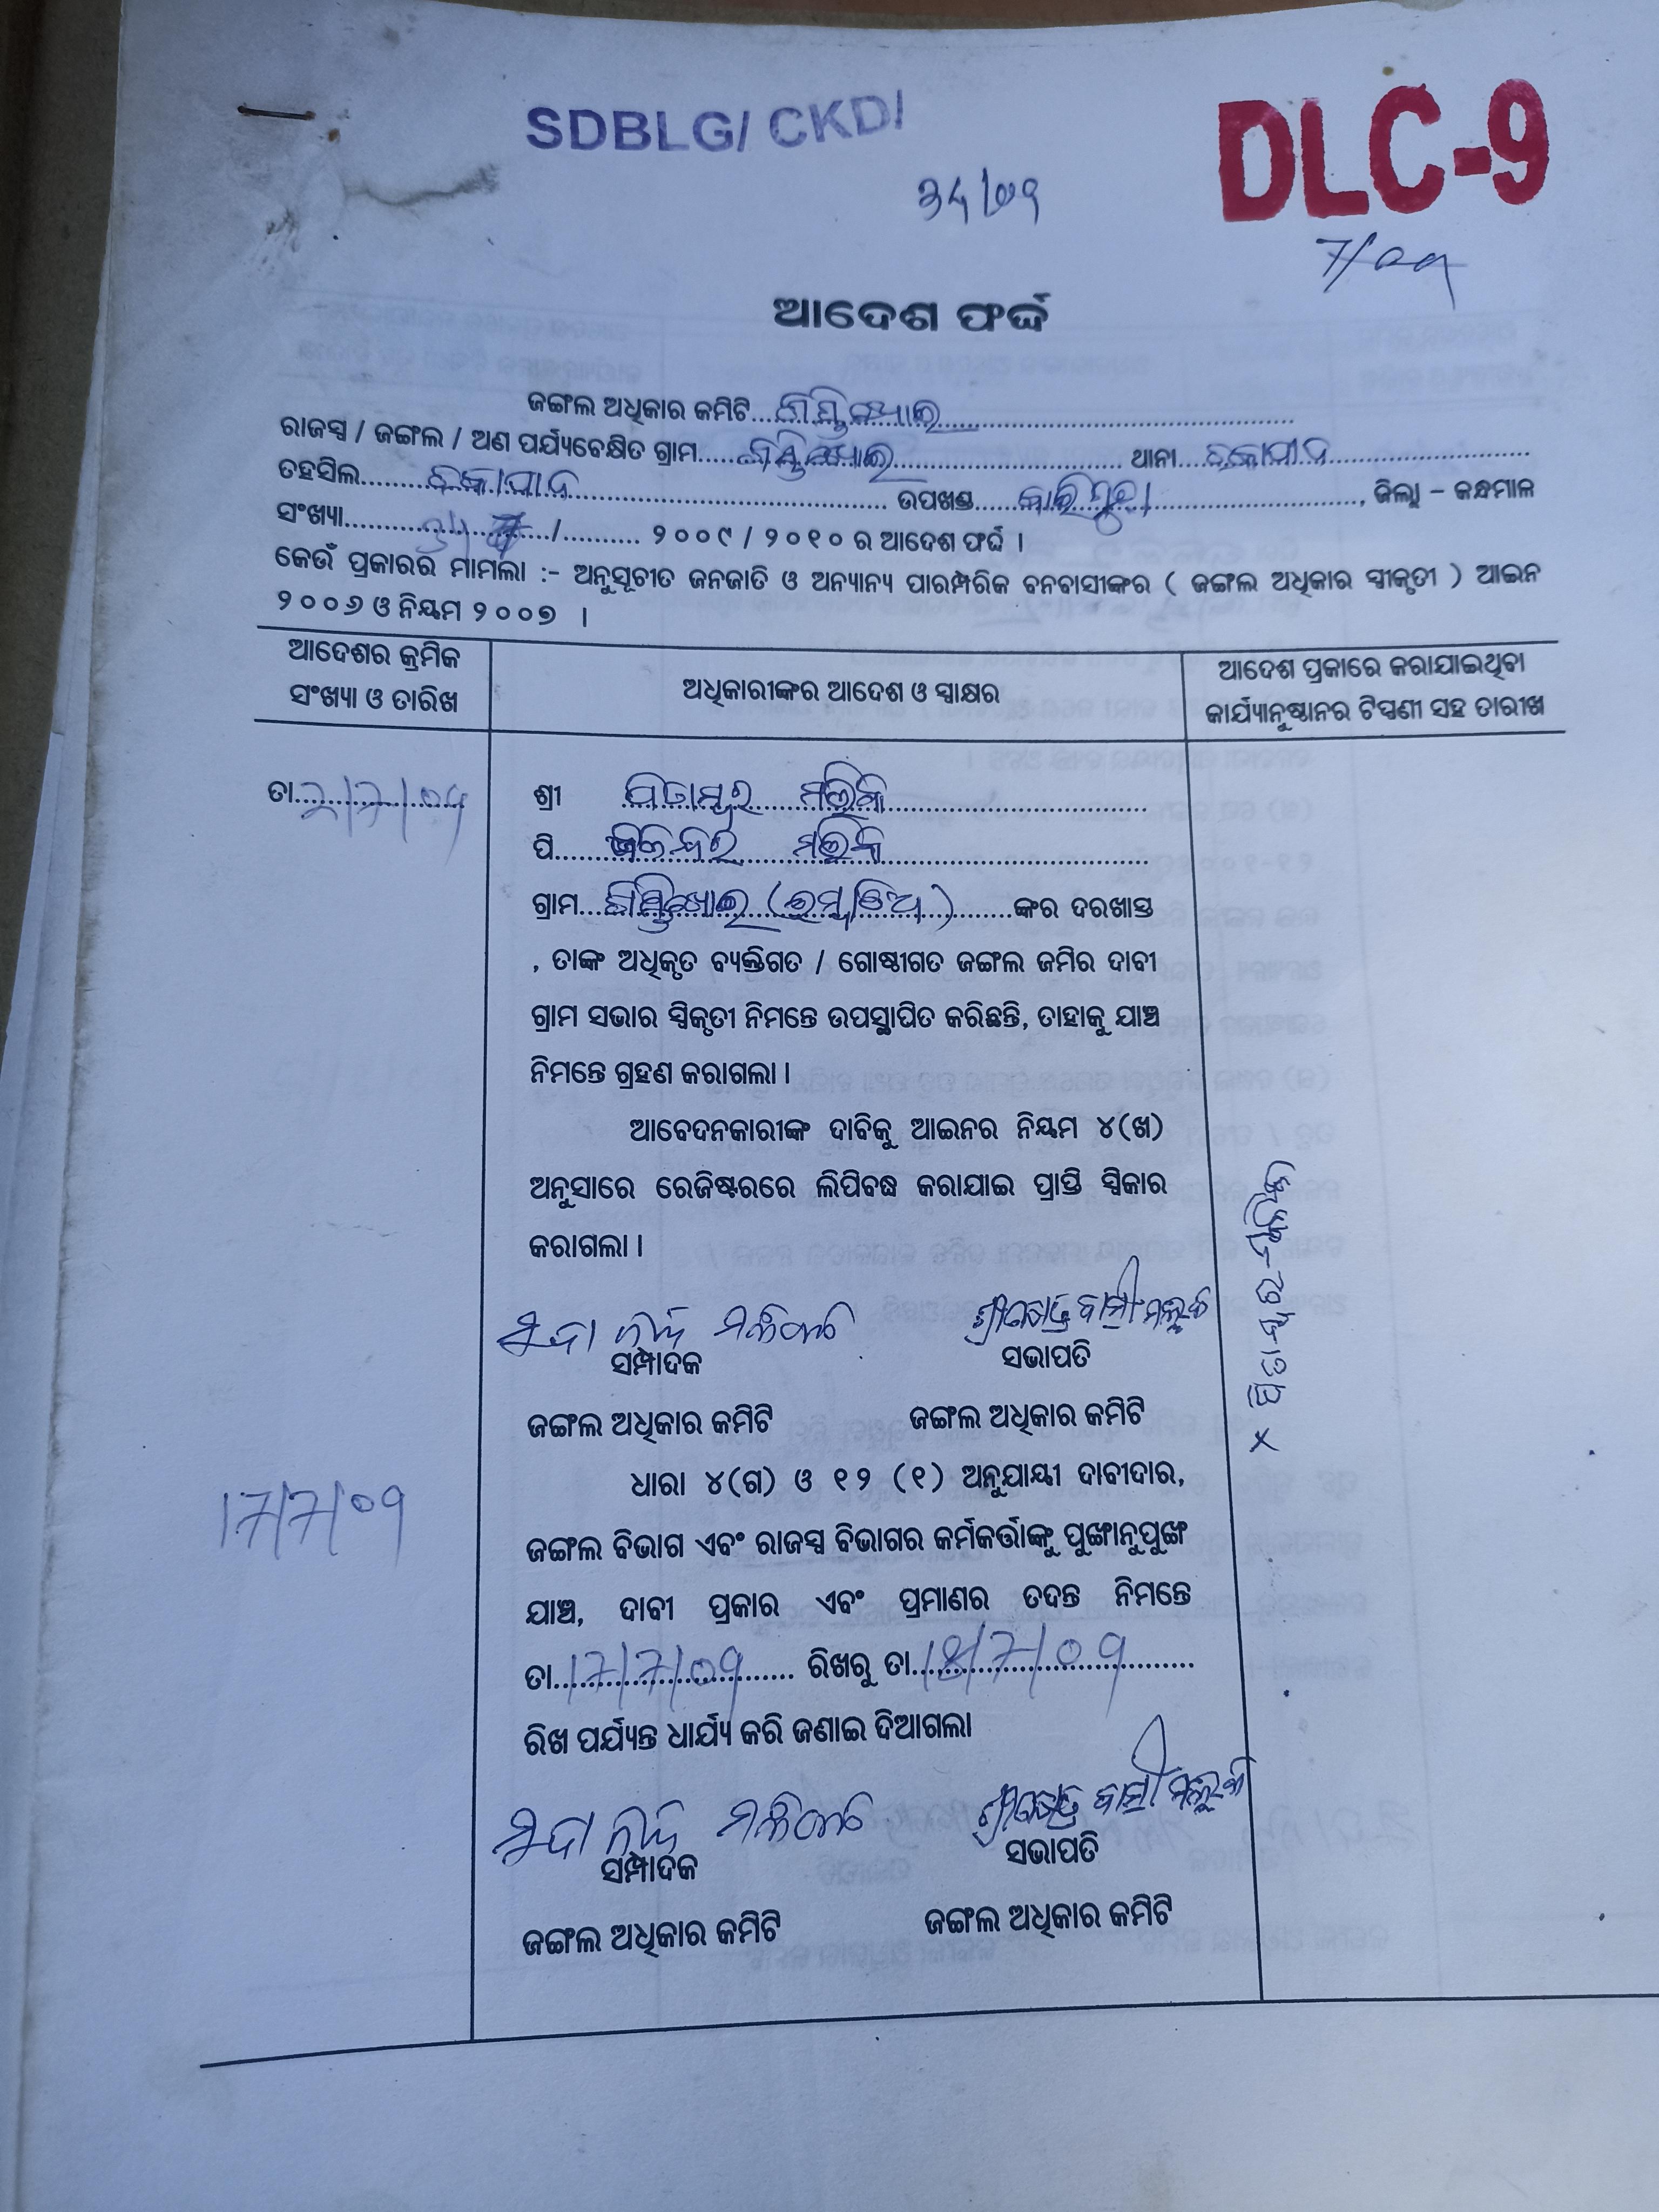 SDBLG/ CKD/
DLC-9
ଆଦେଶ ଫର୍ଦ୍ଦ
ଜଙ୍ଗଲ ଅଧିକାର କମିଟି
ରାଜସ୍ୱ / ଜଙ୍ଗଲ / ଅଣ ପର୍ଯ୍ୟବେକ୍ଷିତ ଗ୍ରାମ ଥାନା
ତହସିଲ ଉପଖଣ୍ଡ ବାଲିଗୁଡ଼ା, ଜିଲ୍ଲା – କନ୍ଧମାଳ
ସଂଖ୍ୟା........../.......... ୨୦୦୯ / ୨୦୧୦ ର ଆଦେଶ ଫର୍ଦ୍ଦ ।
କେଉଁ ପ୍ରକାରର ମାମଲା :- ଅନୁସୂଚୀତ ଜନଜାତି ଓ ଅନ୍ୟାନ୍ୟ ପାରମ୍ପରିକ ବନବାସୀଙ୍କର ( ଜଙ୍ଗଲ ଅଧିକାର ସ୍ୱୀକୃତୀ ) ଆଇନ
୨୦୦୬ ଓ ନିୟମ ୨୦୦୭ ।
ଆଦେଶର କ୍ରମିକ
ସଂଖ୍ୟା ଓ ତାରିଖ
ଅଧିକାରୀଙ୍କର ଆଦେଶ ଓ ସ୍ୱାକ୍ଷର
ଆଦେଶ ପ୍ରକାରେ କରାଯାଇଥିବା
କାର୍ଯ୍ୟାନୁଷ୍ଠାନର ଟିପ୍ପଣୀ ସହ ତାରୀଖ
ତା 2/7/09
ଶ୍ରୀ ପିତାମ୍ବର ମଲିକ
ପି ମଲିକ
ଗ୍ରାମ ଙ୍କର ଦରଖାସ୍ତ
, ତାଙ୍କ ଅଧିକୃତ ବ୍ୟକ୍ତିଗତ / ଗୋଷ୍ଠୀଗତ ଜଙ୍ଗଲ ଜମିର ଦାବୀ
ଗ୍ରାମ ସଭାର ସ୍ୱିକୃତୀ ନିମନ୍ତେ ଉପସ୍ଥାପିତ କରିଛନ୍ତି, ତାହାକୁ ଯାଞ୍ଚ
ନିମନ୍ତେ ଗ୍ରହଣ କରାଗଲା ।
ଆବେଦନକାରୀଙ୍କ ଦାବିକୁ ଆଇନର ନିୟମ ୪(ଖ)
ଅନୁସାରେ ରେଜିଷ୍ଟରରେ ଲିପିବଦ୍ଧ କରାଯାଇ ପ୍ରାପ୍ତି ସ୍ୱିକାର
କରାଗଲା ।
ସମ୍ପାଦକ ସଭାପତି
ଜଙ୍ଗଲ ଅଧିକାର କମିଟି ଜଙ୍ଗଲ ଅଧିକାର କମିଟି
17/7/09
ଧାରା ୪(ଗ) ଓ ୧୨ (୧) ଅନୁଯାୟୀ ଦାବୀଦାର,
ଜଙ୍ଗଲ ବିଭାଗ ଏବଂ ରାଜସ୍ୱ ବିଭାଗର କର୍ମକର୍ତ୍ତାଙ୍କୁ ପୁଙ୍ଖାନୁପୁଙ୍ଖ
ଯାଞ୍ଚ, ଦାବୀ ପ୍ରକାର ଏବଂ ପ୍ରମାଣର ତଦନ୍ତ ନିମନ୍ତେ
ତା 17/7/09 ରିଖରୁ ତା 18/7/09
ରିଖ ପର୍ଯ୍ୟନ୍ତ ଧାର୍ଯ୍ୟ କରି ଜଣାଇ ଦିଆଗଲା
ସମ୍ପାଦକ ସଭାପତି
ଜଙ୍ଗଲ ଅଧିକାର କମିଟି ଜଙ୍ଗଲ ଅଧିକାର କମିଟି